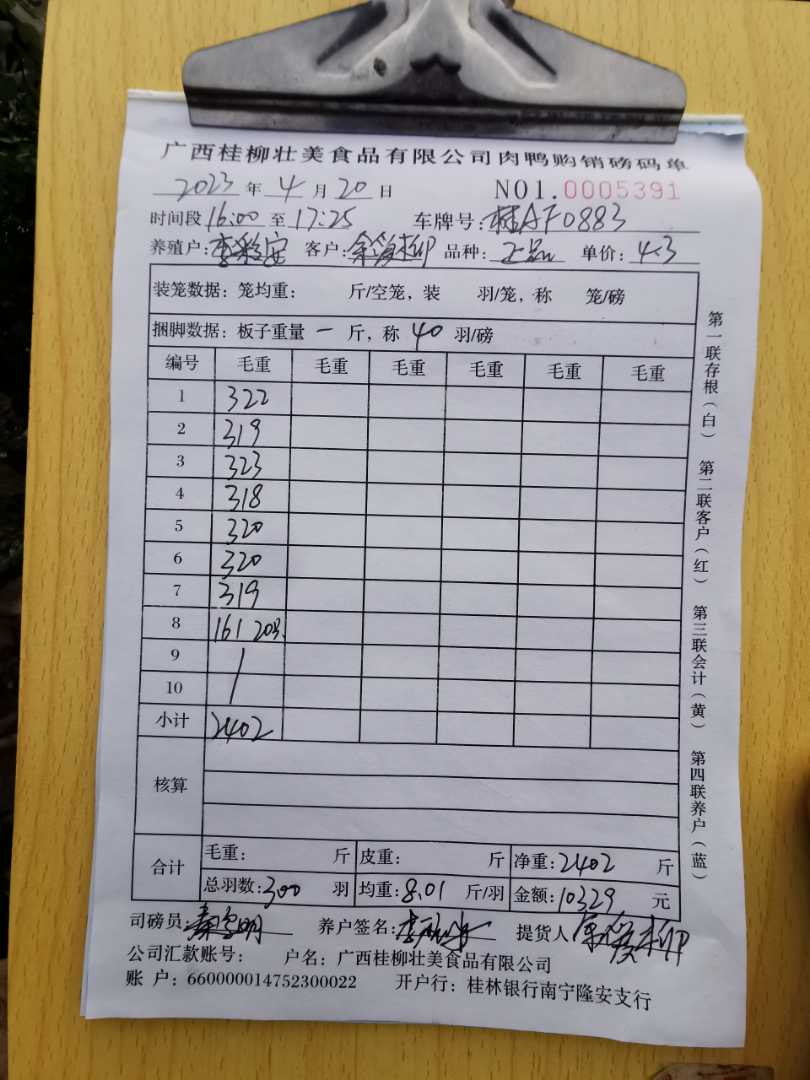 广西桂柳壮美食品有限公司肉鸭购销磅码单
2023 年 4 月 20 日 NO1.0005391
时间段 16:00 至 17:25 车牌号: 桂AF0883
养殖户: 李 客户: 品种: 正品 单价: 4.3
装笼数据: 笼均重: 斤/空笼, 装 羽/笼, 称 笼/磅
捆脚数据: 板子重量 一 斤, 称 40 羽/磅
编号 毛重 毛重 毛重 毛重 毛重 毛重
1 322
2 319
3 323
4 318
5 320
6 320
7 319
8 161 20只
9 /
10
小计 2402
核算
合计 毛重: 斤 皮重: 斤 净重: 2402 斤
总羽数: 300 羽 均重: 8.01 斤/羽 金额: 10329 元
司磅员: 养户签名: 李 提货人
公司汇款账号: 户名: 广西桂柳壮美食品有限公司
账 户: 660000014752300022 开户行: 桂林银行南宁隆安支行
第一联存根(白) 第二联客户(红) 第三联会计(黄) 第四联养户(蓝)